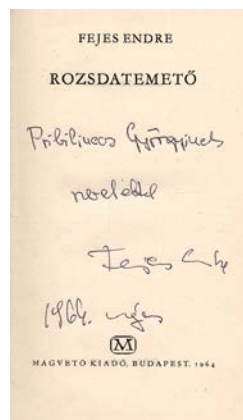 FEJES ENDRE
ROZSDATEMETŐ
Györgyinek
szeretettel
Fejes Endre
1964.
M
MAGVETŐ KIADÓ, BUDAPEST, 1964